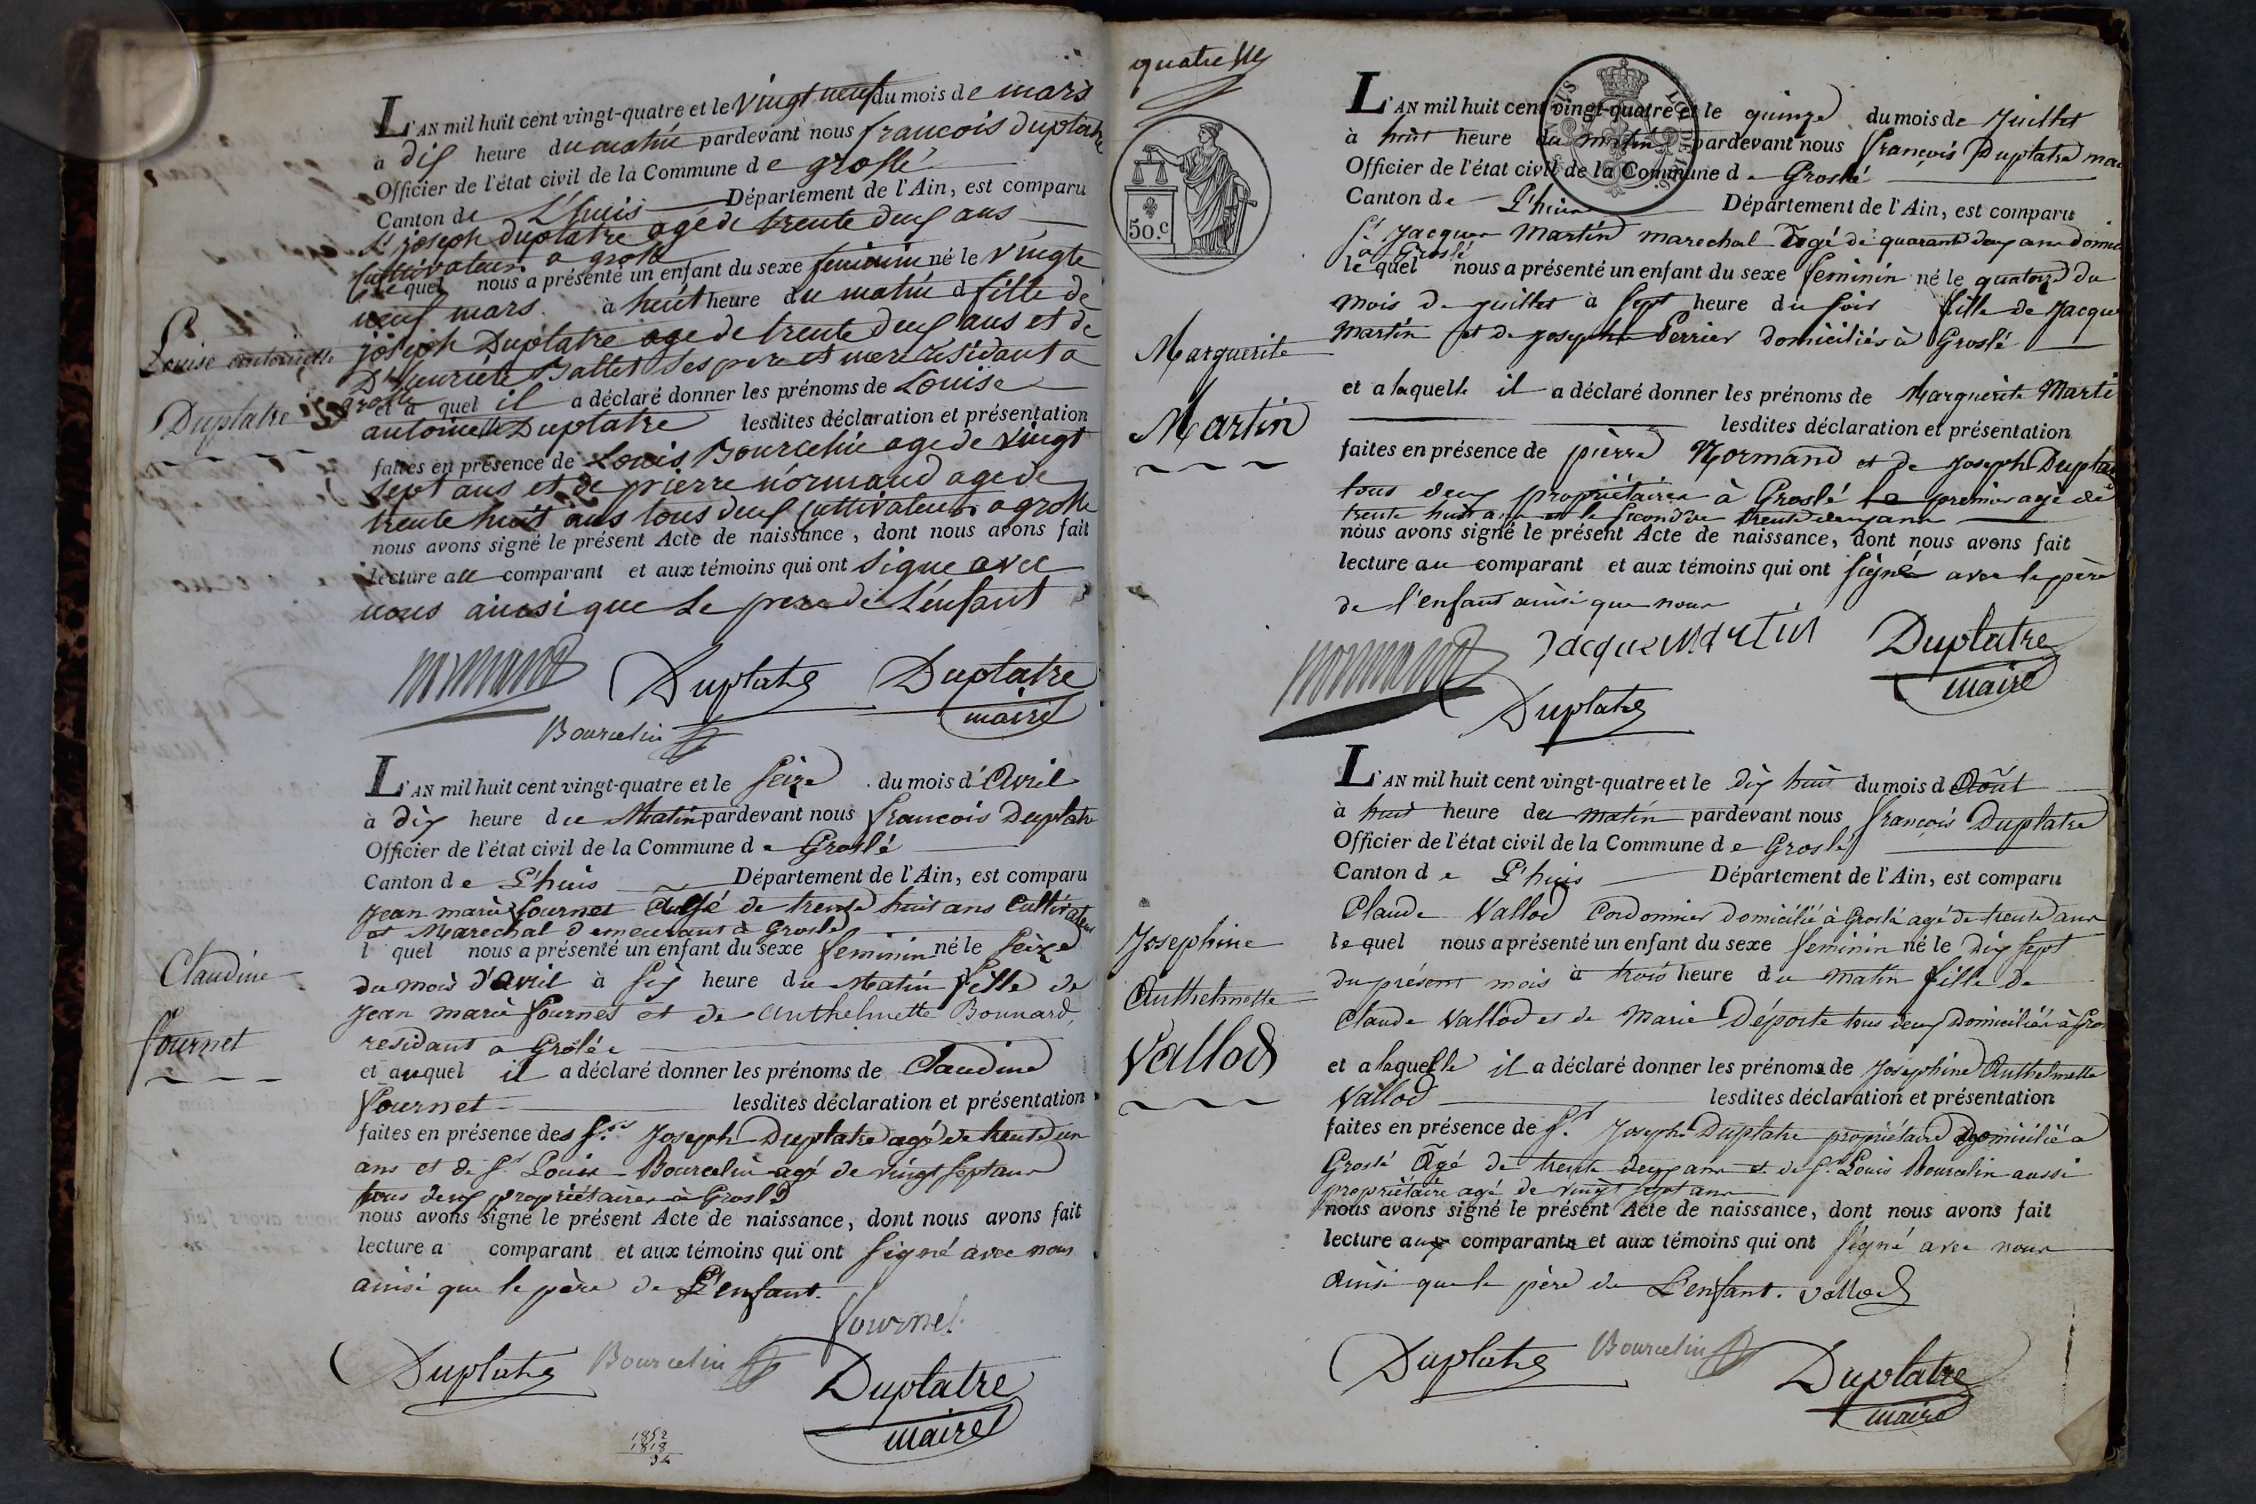 L'AN mil huit cent vingt-quatre et le vingt neuf du mois de mars
à dix heure du matin pardevant nous francois duplatre
Officier de l'état civil de la Commune de groslé
Canton de L'huis Département de l'Ain, est comparu
Sr joseph duplatre agé de trente deux ans
cultivateur a grolé
lequel nous a présenté un enfant du sexe feminin né le vingte
neuf mars à huit heure du matin fille de
joseph Duplatre age de trente deux ans et de
henriete Ballet ses pere et mere residant a
grolle
et a quel il a déclaré donner les prénoms de Louise
antoinette Duplatre lesdites déclaration et présentation
faites en présence de Louis Bourcelin age de vingt
sept ans et de pierre normand age de
trente huit ans tous deux cultivateur a grolle
nous avons signé le présent Acte de naissance, dont nous avons fait
lecture au comparant et aux témoins qui ont signe avec
nous ainsi que le pere de L'enfant
Louise antoinette
Duplatre
normand Duplatre Duplatre
maire
Bourcelin
L'AN mil huit cent vingt-quatre et le Seize du mois d'Avril
à dix heure du Matin pardevant nous francois Duplatre
Officier de l'état civil de la Commune de Groslé
Canton de L'huis Département de l'Ain, est comparu
Jean marie fournet Agé de trente huit ans Cultivateur
et Marechal demeurant à Groslé
l quel nous a présenté un enfant du sexe feminin né le Seize
du mois d'avril à six heure du Matin fille de
Jean marie fournet et de Anthelmette Bonnard
residant a Grolée
et auquel il a déclaré donner les prénoms de Claudine
fournet lesdites déclaration et présentation
faites en présence des Srs Joseph Duplatre agé de trente un
ans et de Sr Louis Bourcelin agé de vingt sept ans
tous deux propriétaires à Groslé
nous avons signé le présent Acte de naissance, dont nous avons fait
lecture a comparant et aux témoins qui ont signé avec nous
ainsi que le père de L'enfant.
Claudine
fournet
fournet
Duplatre Bourcelin Duplatre
maire
1852
1818
34
quatre
50.c
L'AN mil huit cent vingt-quatre et le quinze du mois de Juillet
à huit heure du matin pardevant nous François Duplatre mai
Officier de l'état civil de la Commune de Groslé
Canton de L'huis Département de l'Ain, est comparu
Sr Jacques Martin marechal agé de quarante deux ans domici
a Groslé
lequel nous a présenté un enfant du sexe feminin né le quatorze du
mois de juillet à sept heure du soir fille de Jacque
Martin et de josephe Perrier domiciliés à Groslé
et a laquelle il a déclaré donner les prénoms de Marguerite Marti
lesdites déclaration et présentation
faites en présence de pierre Normand et de Joseph Duplatre
tous deux propriétaires à Groslé le premier agé de
trente huit ans et le second de trente deux ans
nous avons signé le présent Acte de naissance, dont nous avons fait
lecture au comparant et aux témoins qui ont signé avec le père
de l'enfant ainsi que nous
Marguerite
Martin
normand Jacque Martin Duplatre
maire
Duplatre
L'AN mil huit cent vingt-quatre et le dix huit du mois d Août
à huit heure du matin pardevant nous françois Duplatre
Officier de l'état civil de la Commune de Groslé
Canton de L'huis Département de l'Ain, est comparu
Claude Vallod Cordonnier domicilié à Groslé agé de trente ans
lequel nous a présenté un enfant du sexe feminin né le dix sept
du présent mois à trois heure du matin fille de
Claude Vallod et de Marie Déporte tous deux domiciliés à Gros
et a laquelle il a déclaré donner les prénoms de Josephine Anthelmette
Vallod lesdites déclaration et présentation
faites en présence de Sr Joseph Duplatre propriétaire domicilié a
Groslé Agé de trente deux ans et de Sr Louis Bourcelin aussi
propriétaire agé de vingt sept ans
nous avons signé le présent Acte de naissance, dont nous avons fait
lecture aux comparants et aux témoins qui ont signé avec nous
ainsi que le père de L'enfant. vallod
Josephine
Anthelmette
Vallod
Duplatre Bourcelin Duplatre
maire